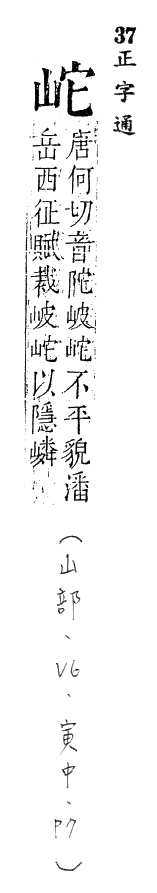 37 正字通
岮
唐何切音陀岥岮不平貌潘
岳西征賦裁岥岮以隱嶙
（山部、V6、寅中、P7）